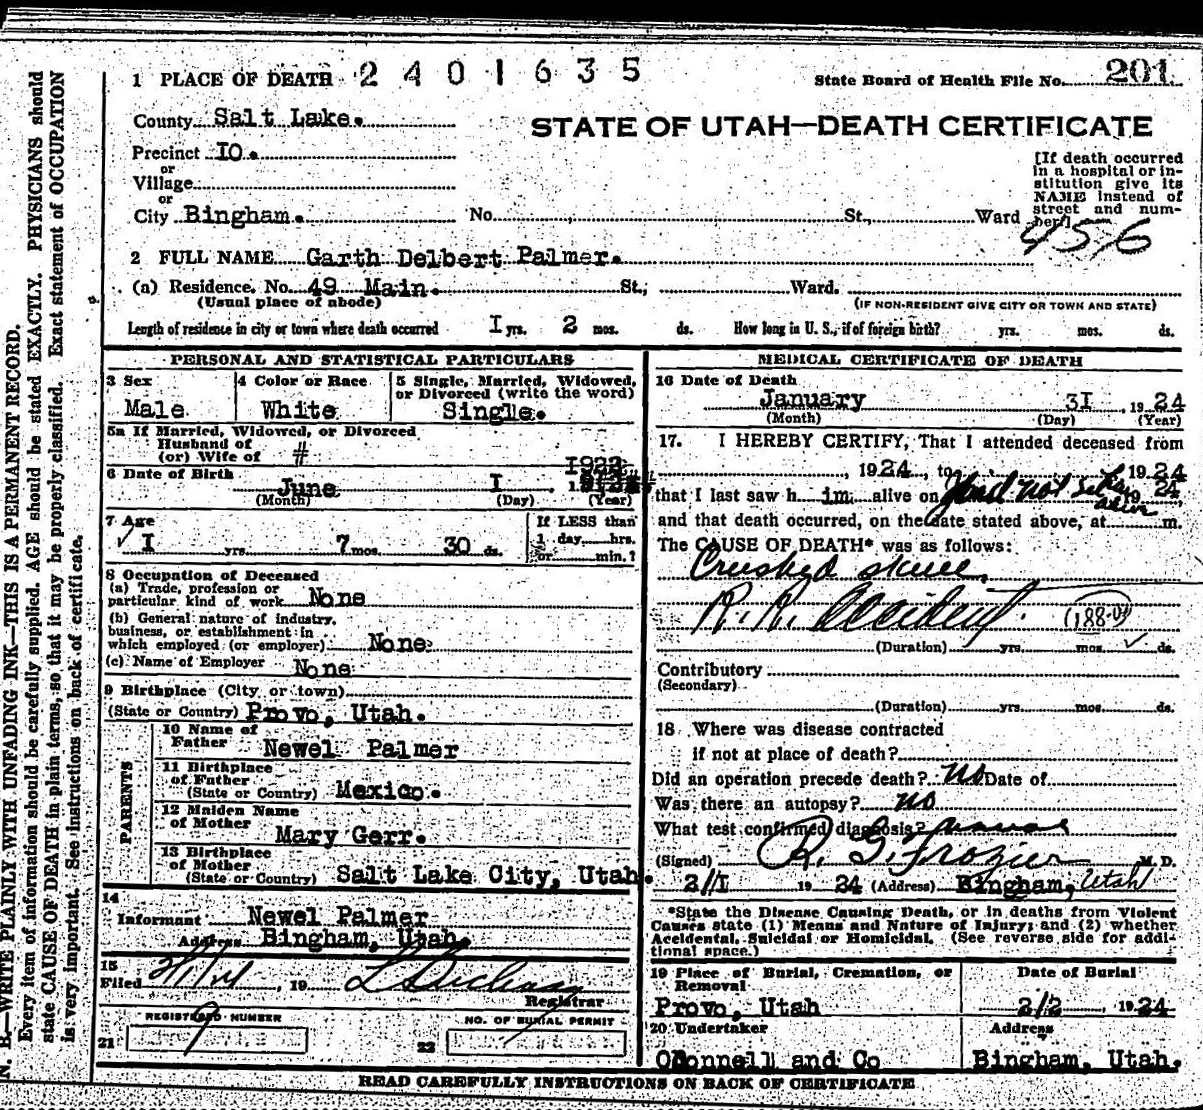 1 PLACE OF DEATH 2401635 State Board of Health File No. 201
County Salt Lake.
STATE OF UTAH—DEATH CERTIFICATE
Precinct 10.
or
Village
or
City Bingham. No. St., Ward
[If death occurred
in a hospital or in-
stitution give its
NAME instead of
street and num-
ber]
456
2 FULL NAME Garth Delbert Palmer.
(a) Residence, No. 49 Main. St.; Ward.
(Usual place of abode) (IF NON-RESIDENT GIVE CITY OR TOWN AND STATE)
Length of residence in city or town where death occurred I yrs. 2 mos. ds. How long in U. S., if of foreign birth? yrs. mos. ds.
PERSONAL AND STATISTICAL PARTICULARS
3 Sex
Male
4 Color or Race
White
5 Single, Married, Widowed,
or Divorced (write the word)
Single.
5a If Married, Widowed, or Divorced
Husband of
(or) Wife of #
6 Date of Birth 1922
June I
(Month) (Day) (Year)
7 Age
I yrs. 7 mos. 30 ds.
If LESS than
1 day, hrs.
or min.?
8 Occupation of Deceased
(a) Trade, profession or
particular kind of work None
(b) General nature of industry,
business, or establishment in
which employed (or employer) None
(c) Name of Employer None
9 Birthplace (City or town)
(State or Country) Provo, Utah.
PARENTS
10 Name of
Father Newel Palmer
11 Birthplace
of Father
(State or Country) Mexico.
12 Maiden Name
of Mother
Mary Gerr.
13 Birthplace
of Mother
(State or Country) Salt Lake City, Utah.
14
Informant Newel Palmer
Address Bingham, Utah.
15
Filed 2/1/24, 19
Registrar
REGISTERED NUMBER NO. OF BURIAL PERMIT
21 9 22
MEDICAL CERTIFICATE OF DEATH
16 Date of Death
January 3I, 1924
(Month) (Day) (Year)
17. I HEREBY CERTIFY, That I attended deceased from
, 1924, to , 1924
that I last saw him alive on 1924
and that death occurred, on the date stated above, at m.
The CAUSE OF DEATH* was as follows:
Crushed skull,
R.R. Accident. 188-04
(Duration) yrs. mos. ds.
Contributory
(Secondary)
(Duration) yrs. mos. ds.
18 Where was disease contracted
if not at place of death?
Did an operation precede death? No Date of
Was there an autopsy? no
What test confirmed diagnosis?
(Signed) R. G. Frazier M. D.
2/I 1924 (Address) Bingham, Utah
*State the Disease Causing Death, or in deaths from Violent
Causes state (1) Means and Nature of Injury; and (2) whether
Accidental, Suicidal or Homicidal. (See reverse side for addi-
tional space.)
19 Place of Burial, Cremation, or
Removal
Provo, Utah
Date of Burial
2/2 1924
20 Undertaker
ODonnell and Co
Address
Bingham, Utah.
READ CAREFULLY INSTRUCTIONS ON BACK OF CERTIFICATE
N. B.—WRITE PLAINLY WITH UNFADING INK—THIS IS A PERMANENT RECORD.
Every item of information should be carefully supplied. AGE should be stated EXACTLY. PHYSICIANS should
state CAUSE OF DEATH in plain terms, so that it may be properly classified. Exact statement of OCCUPATION
is very important. See instructions on back of certificate.